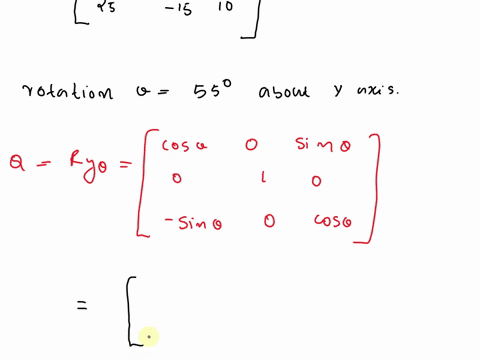 25 -15 10
rotation θ = 55° about y axis.
Q = Ryθ = [ cosθ 0 sinθ
0 1 0
-sinθ 0 cosθ ]
= [